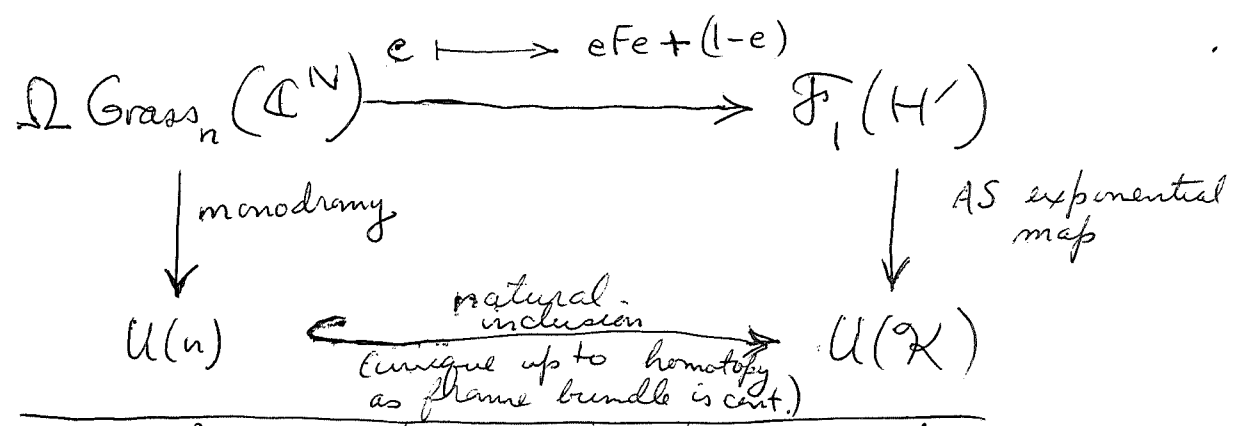 e ⟼ eFe + (1-e)
Ω Grass_n (ℂ^N) ⟶ ℱ_1 (H')
↓ monodromy
↓ AS exponential
map
natural
inclusion
U(n) ↪ U(𝒦)
(unique up to homotopy
as frame bundle is cont.)